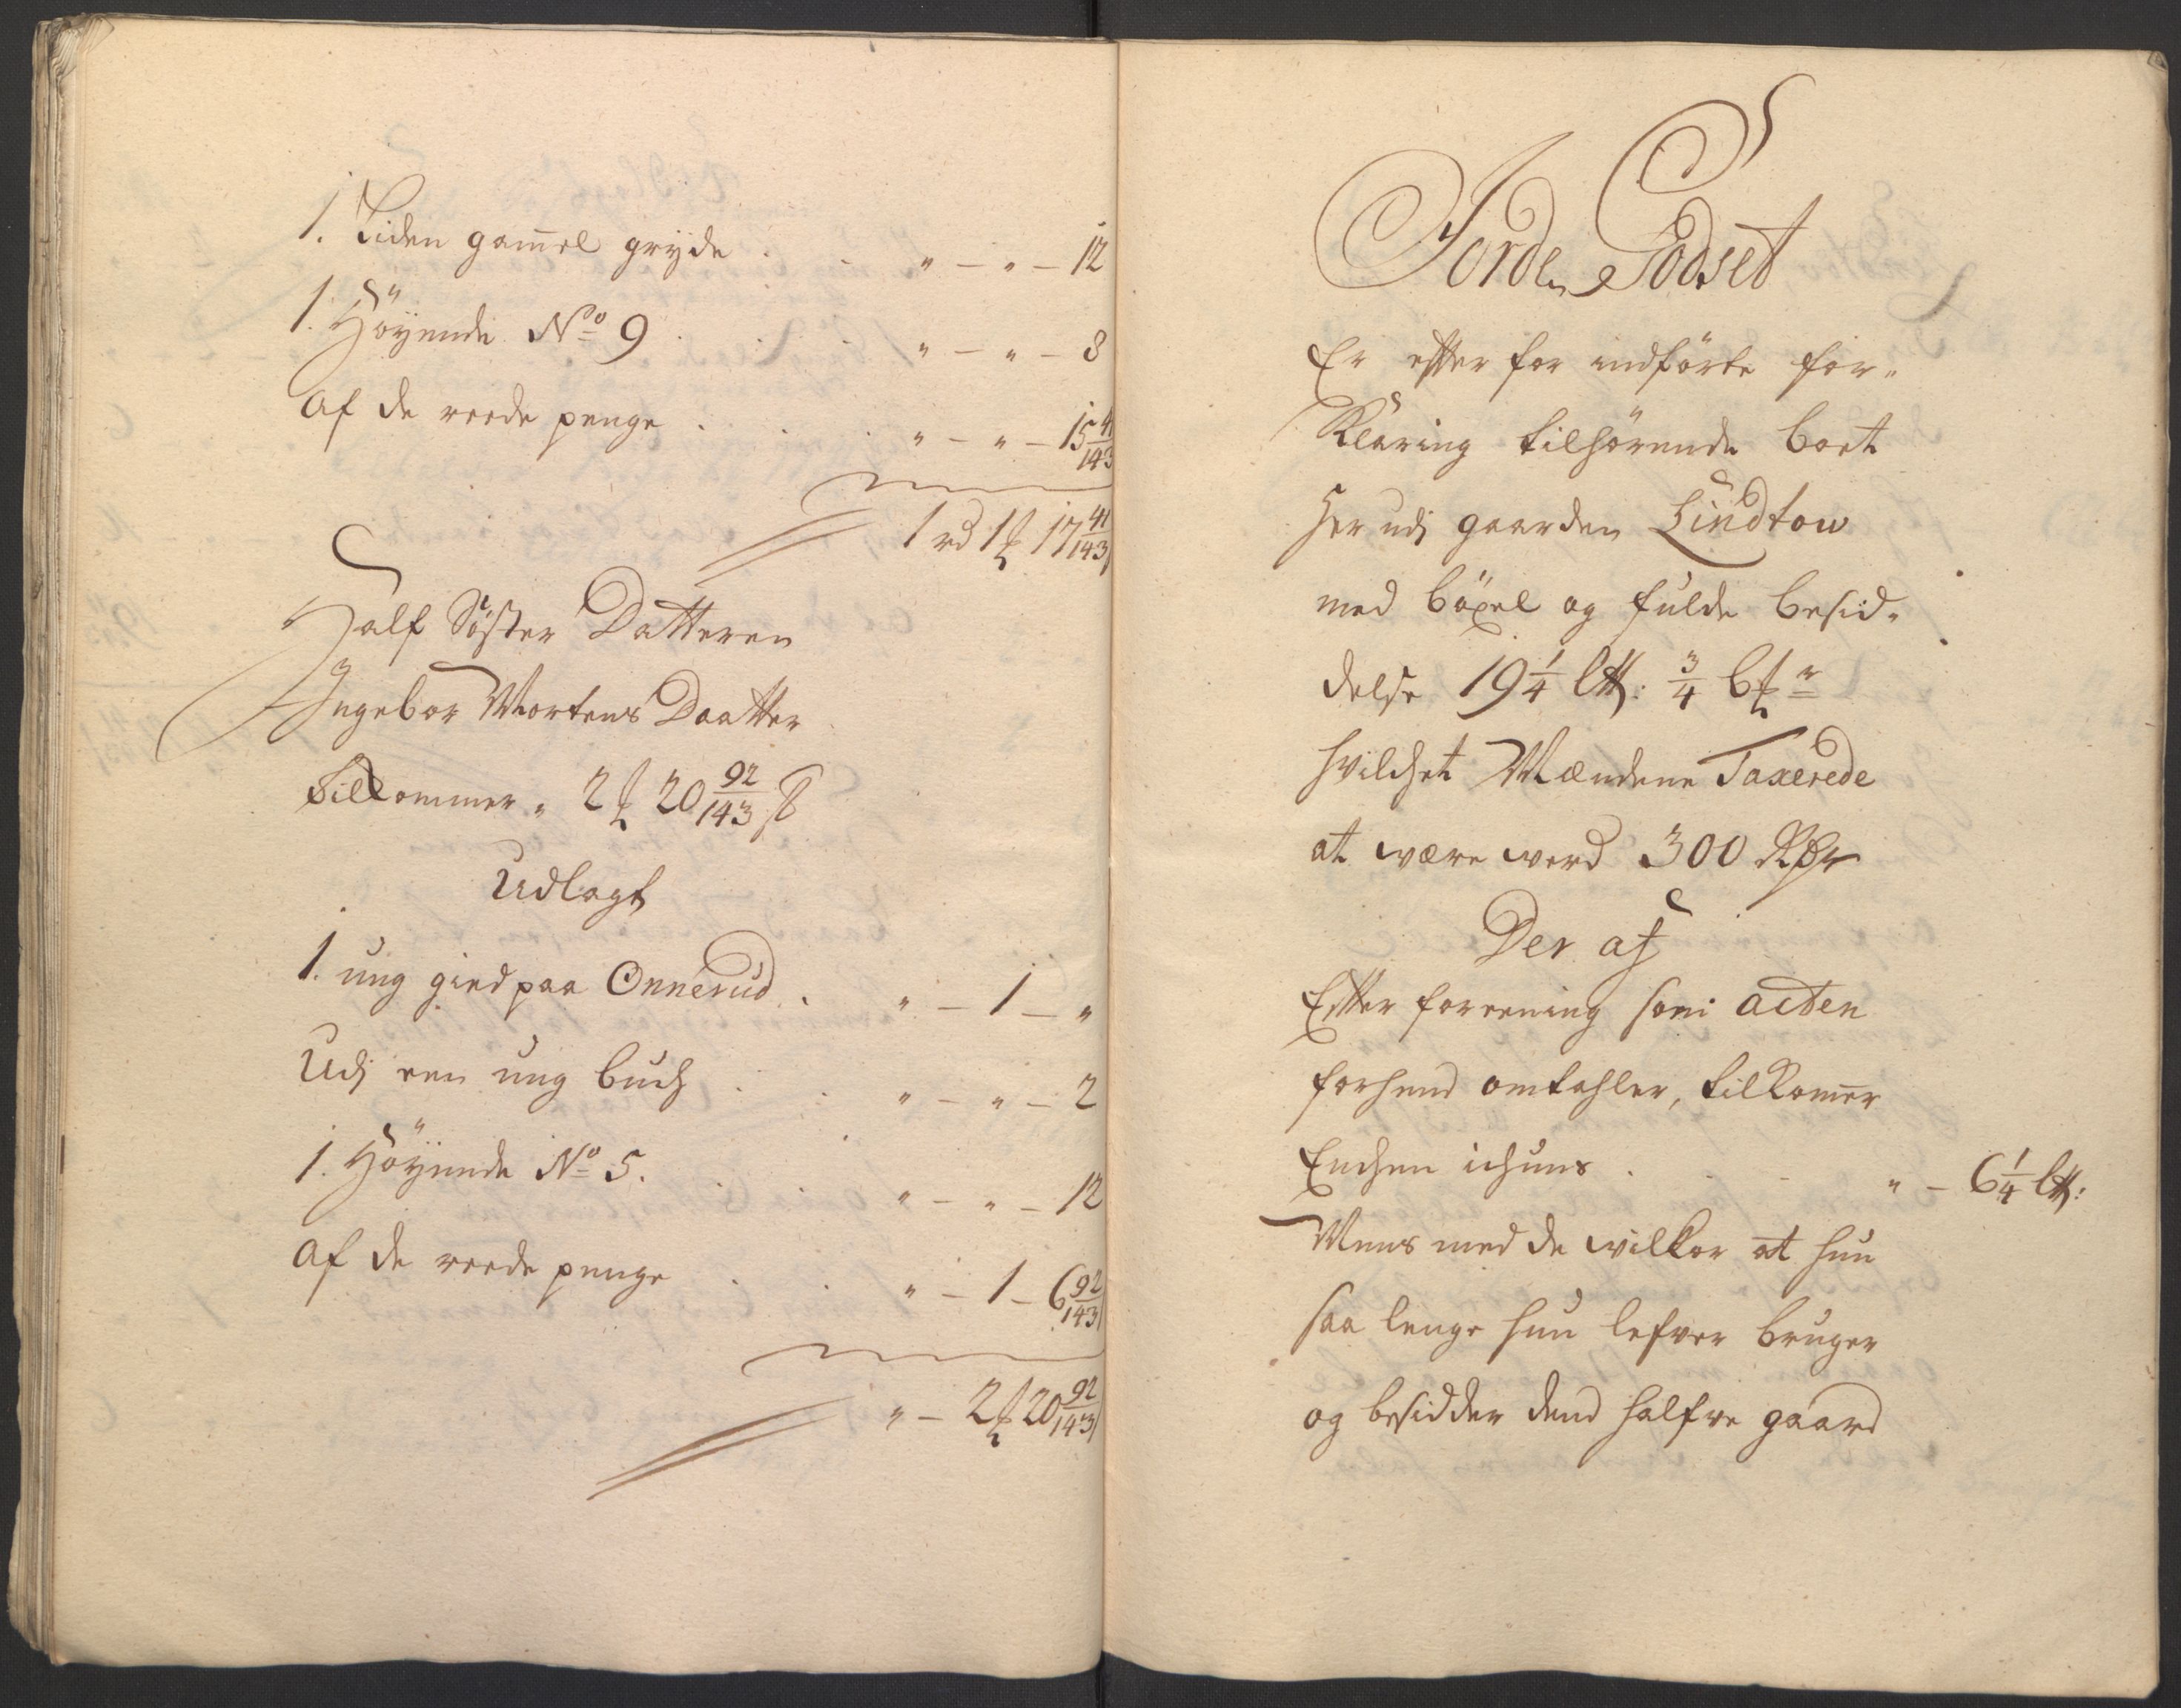 1. Liden gam̄el gryde . . " – " – 12
1. Höyende No 9 . . . " – " – 8
af de reede penge . . . " – " – 15 41/143
1 rd 1 ₰ 17 41/143
Half Söster Datteren
Ingebor Mortens Daatter
tilkommer " 2 ₰ 20 92/143 ß
Udlagt
1. ung gied paa Onnerud . " – 1 – "
Udj een ung buch . . " – " – 2
1. Höyende No 5. . . " – " – 12
af de reede penge . . " – 1 – 6 92/143
" – 2 ₰ 20 92/143
Jorde Godset
Er efter for indförte for„
Klaring tilhörende boet
her udj gaarden Lindtow
med böxel og fulde besid„
delse 19 1/4 l℔: 3/4 b₰r
hvilchet Mændene Taxerede
at være werd 300 Rdr
Der af
Efter foreening som acten
forhend omtahler, tilkom̄er
Enchen ichuns . . . " – 6 1/4 l℔:
Mens med de wilkor at hun
saa lenge hun lefver bruger
og besidder dend halfve gaard